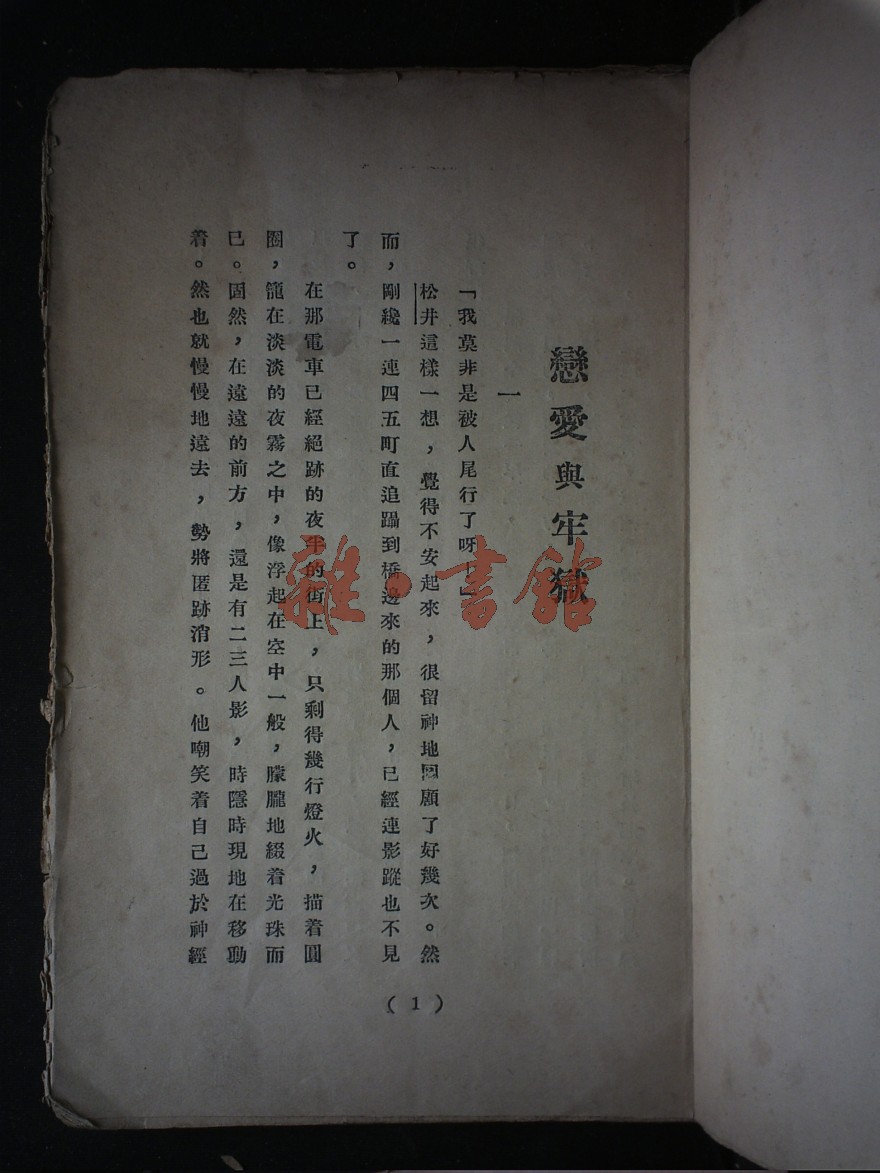 戀愛與牢獄
一
「我莫非是被人尾行了呀！」
松井這樣一想，覺得不安起來，很留神地回顧了好幾次。然
而，剛纔一連四五町直追躡到橋邊來的那個人，已經連影蹤也不見
了。
在那電車已經絕跡的夜半的街上，只剩得幾行燈火，描着圓
圈，籠在淡淡的夜霧之中，像浮起在空中一般，朦朧地綴着光珠而
已。固然，在遠遠的前方，還是有二三人影，時隱時現地在移動
着。然也就慢慢地遠去，勢將匿跡消形。他嘲笑着自己過於神經
( 1 )
雜·書館